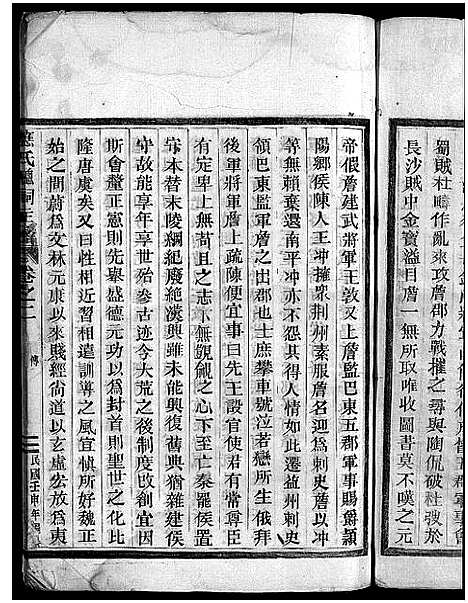 蜀賊杜疇作亂來攻詹郡力戰摧之尋與陶侃破杜弢於
長沙賊中金寶溢目詹一無所取唯收圖書莫不嘆之元
帝假詹建武將軍王敦又上詹監巴東五郡軍事賜爵潁
陽鄉侯陳人王冲擁衆荆州素服詹名迎爲刺史詹以冲
等無賴棄還南平冲亦不怨其得人情如此遷益州刺史
領巴東監軍詹之出郡也士庶攀車號泣若戀所生俄拜
後軍將軍詹上疏陳便宜事曰先王設官使君有常尊臣
有定卑上無苟且之志下無覬覦之心下至亡秦罷侯置
守本替末陵綱紀廢絶漢興雖未能興復舊典猶雜建侯
守故能享年享世殆參古迹今大荒之後制度改創宜因
斯會釐正憲則先舉盛德元功以爲封首則聖世之化比
隆唐虞矣又曰性相近習相遠訓導之風宜愼所好魏正
始之間蔚爲文林元康以來賤經尚道以玄虛宏放爲東
應氏
卷之二
傳
民國壬申年